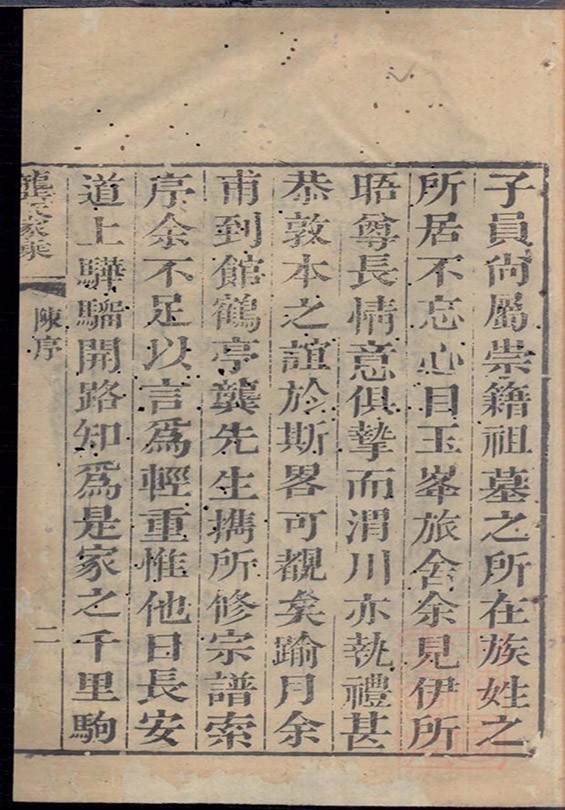 子員尙屬崇籍祖墓之所在族姓之
所居不忘心目玉峯旅舍余見伊所
晤尊長情意俱摯而渭川亦執禮甚
恭敦本之誼於斯畧可覩矣踰月余
甫到館鶴亭龔先生携所修宗譜索
序余不足以言爲輕重惟他日長安
道上驊騮開路知爲是家之千里駒
龔氏家乘
陳序
二